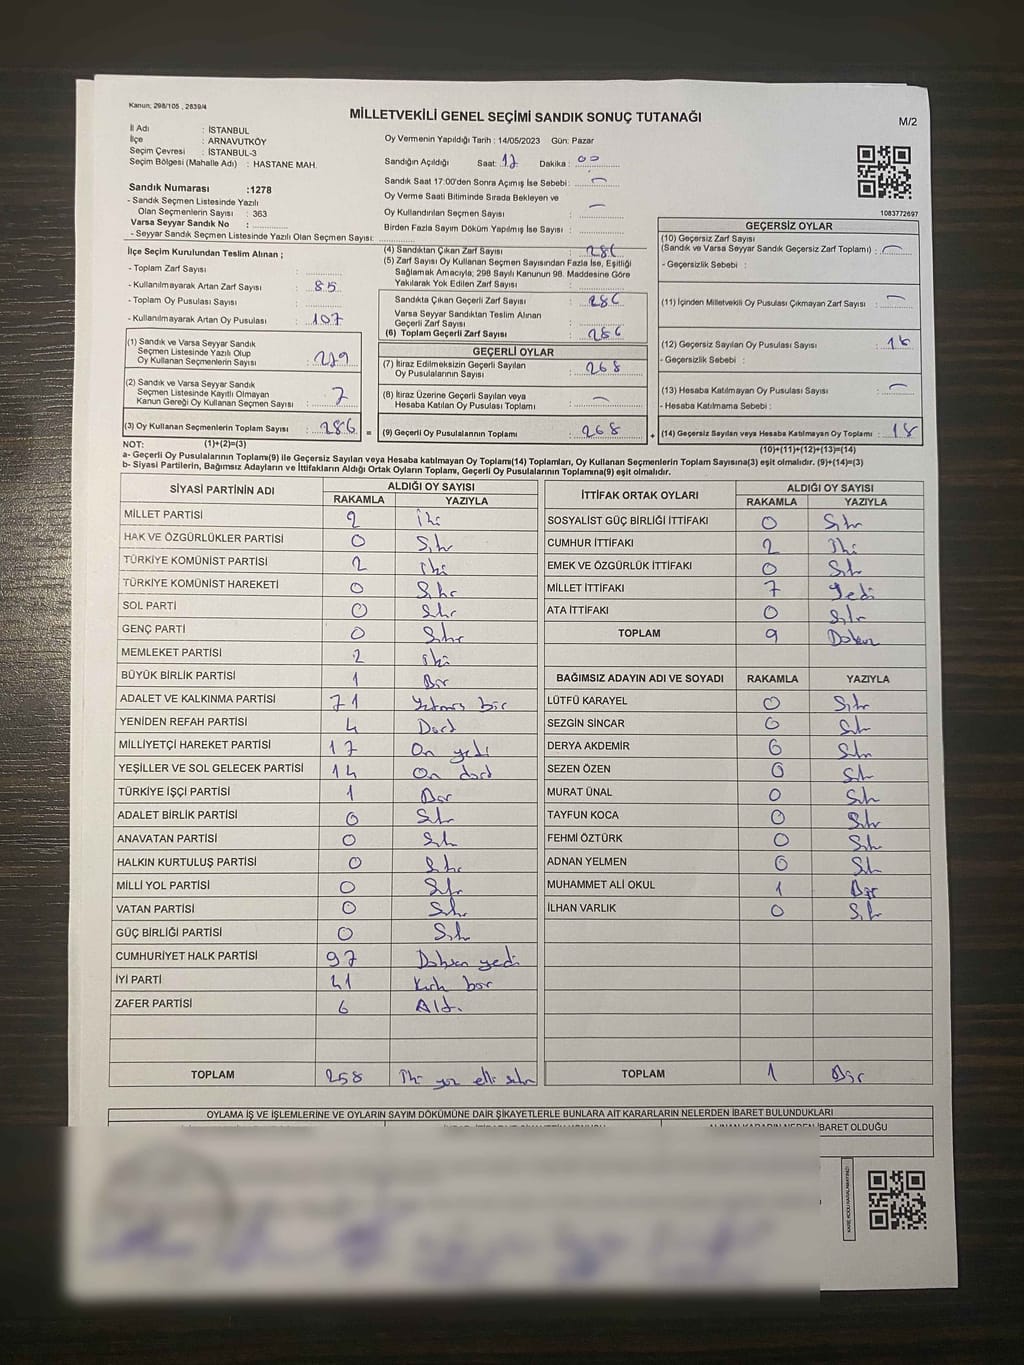 Kanun; 298/105 , 2839/4
MİLLETVEKİLİ GENEL SEÇİMİ SANDIK SONUÇ TUTANAĞI
M/2
İl Adı : İSTANBUL
İlçe : ARNAVUTKÖY
Seçim Çevresi : İSTANBUL-3
Seçim Bölgesi (Mahalle Adı) : HASTANE MAH.
Oy Vermenin Yapıldığı Tarih : 14/05/2023 Gün: Pazar
Sandığın Açıldığı Saat: 17 Dakika : 00
Sandık Saat 17:00'den Sonra Açımış İse Sebebi : —
Oy Verme Saati Bitiminde Sırada Bekleyen ve
Oy Kullandırılan Seçmen Sayısı : —
Birden Fazla Sayım Döküm Yapılmış İse Sayısı :
1083772697
Sandık Numarası :1278
- Sandık Seçmen Listesinde Yazılı
Olan Seçmenlerin Sayısı : 363
Varsa Seyyar Sandık No :
- Seyyar Sandık Seçmen Listesinde Yazılı Olan Seçmen Sayısı:
İlçe Seçim Kurulundan Teslim Alınan ;
- Toplam Zarf Sayısı :
- Kullanılmayarak Artan Zarf Sayısı : 85
- Toplam Oy Pusulası Sayısı :
- Kullanılmayarak Artan Oy Pusulası : 107
(1) Sandık ve Varsa Seyyar Sandık
Seçmen Listesinde Yazılı Olup
Oy Kullanan Seçmenlerin Sayısı : 279
(2) Sandık ve Varsa Seyyar Sandık
Seçmen Listesinde Kayıtlı Olmayan
Kanun Gereği Oy Kullanan Seçmen Sayısı : 7
(3) Oy Kullanan Seçmenlerin Toplam Sayısı : 286 =
(4) Sandıktan Çıkan Zarf Sayısı : 286
(5) Zarf Sayısı Oy Kullanan Seçmen Sayısından Fazla İse, Eşitliği
Sağlamak Amacıyla; 298 Sayılı Kanunun 98. Maddesine Göre
Yakılarak Yok Edilen Zarf Sayısı :
Sandıkta Çıkan Geçerli Zarf Sayısı : 286
Varsa Seyyar Sandıktan Teslim Alınan
Geçerli Zarf Sayısı :
(6) Toplam Geçerli Zarf Sayısı : 286
GEÇERLİ OYLAR
(7) İtiraz Edilmeksizin Geçerli Sayılan
Oy Pusulalarının Sayısı : 268
(8) İtiraz Üzerine Geçerli Sayılan veya
Hesaba Katılan Oy Pusulası Toplamı : —
(9) Geçerli Oy Pusulalarının Toplamı : 268 +
GEÇERSİZ OYLAR
(10) Geçersiz Zarf Sayısı
(Sandık ve Varsa Seyyar Sandık Geçersiz Zarf Toplamı) : —
- Geçersizlik Sebebi :
(11) İçinden Milletvekili Oy Pusulası Çıkmayan Zarf Sayısı : —
(12) Geçersiz Sayılan Oy Pusulası Sayısı : 18
- Geçersizlik Sebebi :
(13) Hesaba Katılmayan Oy Pusulası Sayısı : —
- Hesaba Katılmama Sebebi :
(14) Geçersiz Sayılan veya Hesaba Katılmayan Oy Toplamı : 18
NOT: (1)+(2)=(3)
(10)+(11)+(12)+(13)=(14)
a- Geçerli Oy Pusulalarının Toplamı(9) ile Geçersiz Sayılan veya Hesaba katılmayan Oy Toplamı(14) Toplamları, Oy Kullanan Seçmenlerin Toplam Sayısına(3) eşit olmalıdır. (9)+(14)=(3)
b- Siyasi Partilerin, Bağımsız Adayların ve İttifakların Aldığı Ortak Oyların Toplamı, Geçerli Oy Pusulalarının Toplamına(9) eşit olmalıdır.
SİYASİ PARTİNİN ADI ALDIĞI OY SAYISI
RAKAMLA YAZIYLA
MİLLET PARTİSİ 2 İki
HAK VE ÖZGÜRLÜKLER PARTİSİ 0 Sıfır
TÜRKİYE KOMÜNİST PARTİSİ 2 iki
TÜRKİYE KOMÜNİST HAREKETİ 0 Sıfır
SOL PARTİ 0 Sıfır
GENÇ PARTİ 0 Sıfır
MEMLEKET PARTİSİ 2 iki
BÜYÜK BİRLİK PARTİSİ 1 Bir
ADALET VE KALKINMA PARTİSİ 71 Yetmiş bir
YENİDEN REFAH PARTİSİ 4 Dört
MİLLİYETÇİ HAREKET PARTİSİ 17 On yedi
YEŞİLLER VE SOL GELECEK PARTİSİ 14 On dört
TÜRKİYE İŞÇİ PARTİSİ 1 Bir
ADALET BİRLİK PARTİSİ 0 Sıfır
ANAVATAN PARTİSİ 0 Sıfır
HALKIN KURTULUŞ PARTİSİ 0 Sıfır
MİLLİ YOL PARTİSİ 0 Sıfır
VATAN PARTİSİ 0 Sıfır
GÜÇ BİRLİĞİ PARTİSİ 0 Sıfır
CUMHURİYET HALK PARTİSİ 97 Doksan yedi
İYİ PARTİ 41 Kırk bir
ZAFER PARTİSİ 6 Altı
TOPLAM 258 İki yüz elli sekiz
İTTİFAK ORTAK OYLARI ALDIĞI OY SAYISI
RAKAMLA YAZIYLA
SOSYALİST GÜÇ BİRLİĞİ İTTİFAKI 0 Sıfır
CUMHUR İTTİFAKI 2 İki
EMEK VE ÖZGÜRLÜK İTTİFAKI 0 Sıfır
MİLLET İTTİFAKI 7 Yedi
ATA İTTİFAKI 0 Sıfır
TOPLAM 9 Dokuz
BAĞIMSIZ ADAYIN ADI VE SOYADI RAKAMLA YAZIYLA
LÜTFÜ KARAYEL 0 Sıfır
SEZGİN SİNCAR 0 Sıfır
DERYA AKDEMİR 0 Sıfır
SEZEN ÖZEN 0 Sıfır
MURAT ÜNAL 0 Sıfır
TAYFUN KOCA 0 Sıfır
FEHMİ ÖZTÜRK 0 Sıfır
ADNAN YELMEN 0 Sıfır
MUHAMMET ALİ OKUL 1 Bir
İLHAN VARLIK 0 Sıfır
TOPLAM 1 Bir
OYLAMA İŞ VE İŞLEMLERİNE VE OYLARIN SAYIM DÖKÜMÜNE DAİR ŞİKAYETLERLE BUNLARA AİT KARARLARIN NELERDEN İBARET BULUNDUKLARI
İBARET OLDUĞU
KARE KODU KARALAMAYINIZ!